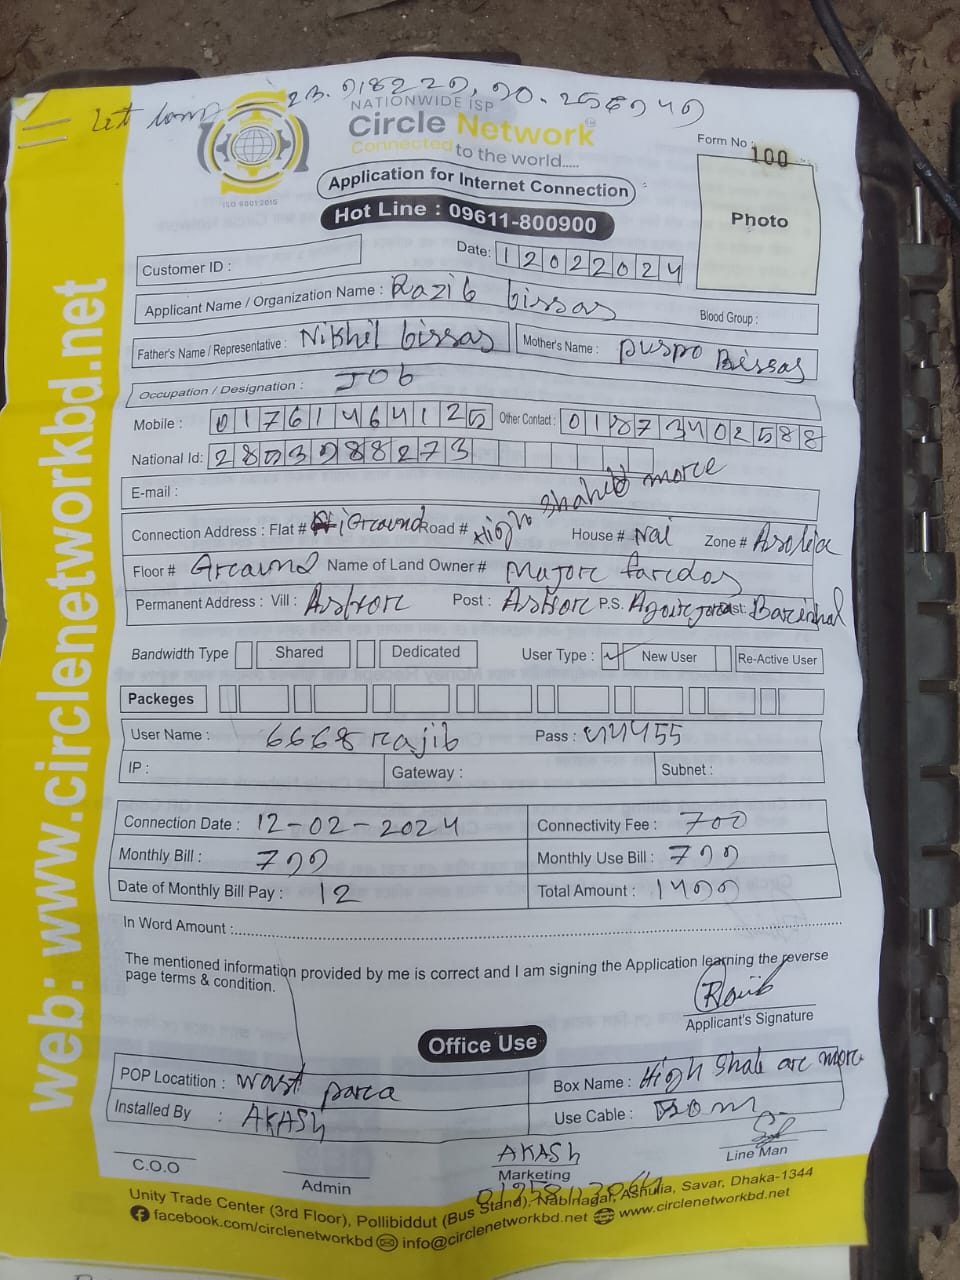 Let long 23.918229, 90.256949
NATIONWIDE ISP
Circle Network
Connected to the world.....
ISO 9001:2015
Form No : 100
Photo
Application for Internet Connection
Hot Line : 09611-800900
Customer ID :
Date: 12022024
Applicant Name / Organization Name : Razib bissas Blood Group :
Father's Name / Representative : Nikhil bissas Mother's Name : puspo Bissas
Occupation / Designation : Job
Mobile : 01761464125 Other Contact : 01873402588
National Id: 2853988273
E-mail :
Connection Address : Flat # Ground Road # High shahed more House # Nai Zone # Asolia
Floor # Groaund Name of Land Owner # Majore faredos
Permanent Address : Vill : Post : P.S. Dist:
Bandwidth Type Shared Dedicated User Type : ✓ New User Re-Active User
Packeges
User Name : 6668rajib Pass : 455
IP : Gateway : Subnet :
Connection Date : 12-02-2024 Connectivity Fee : 700
Monthly Bill : 700 Monthly Use Bill : 700
Date of Monthly Bill Pay : 12 Total Amount : 1400
In Word Amount :
The mentioned information provided by me is correct and I am signing the Application learning the reverse
page terms & condition.
Applicant's Signature
Office Use
POP Locatition : west para Box Name : High Shah are more
Installed By : AKASH Use Cable :
AKASH
C.O.O Admin Marketing Line Man
Unity Trade Center (3rd Floor), Pollibiddut (Bus Stand), Nabinagar, Ashulia, Savar, Dhaka-1344
facebook.com/circlenetworkbd info@circlenetworkbd.net www.circlenetworkbd.net
web: www.circlenetworkbd.net